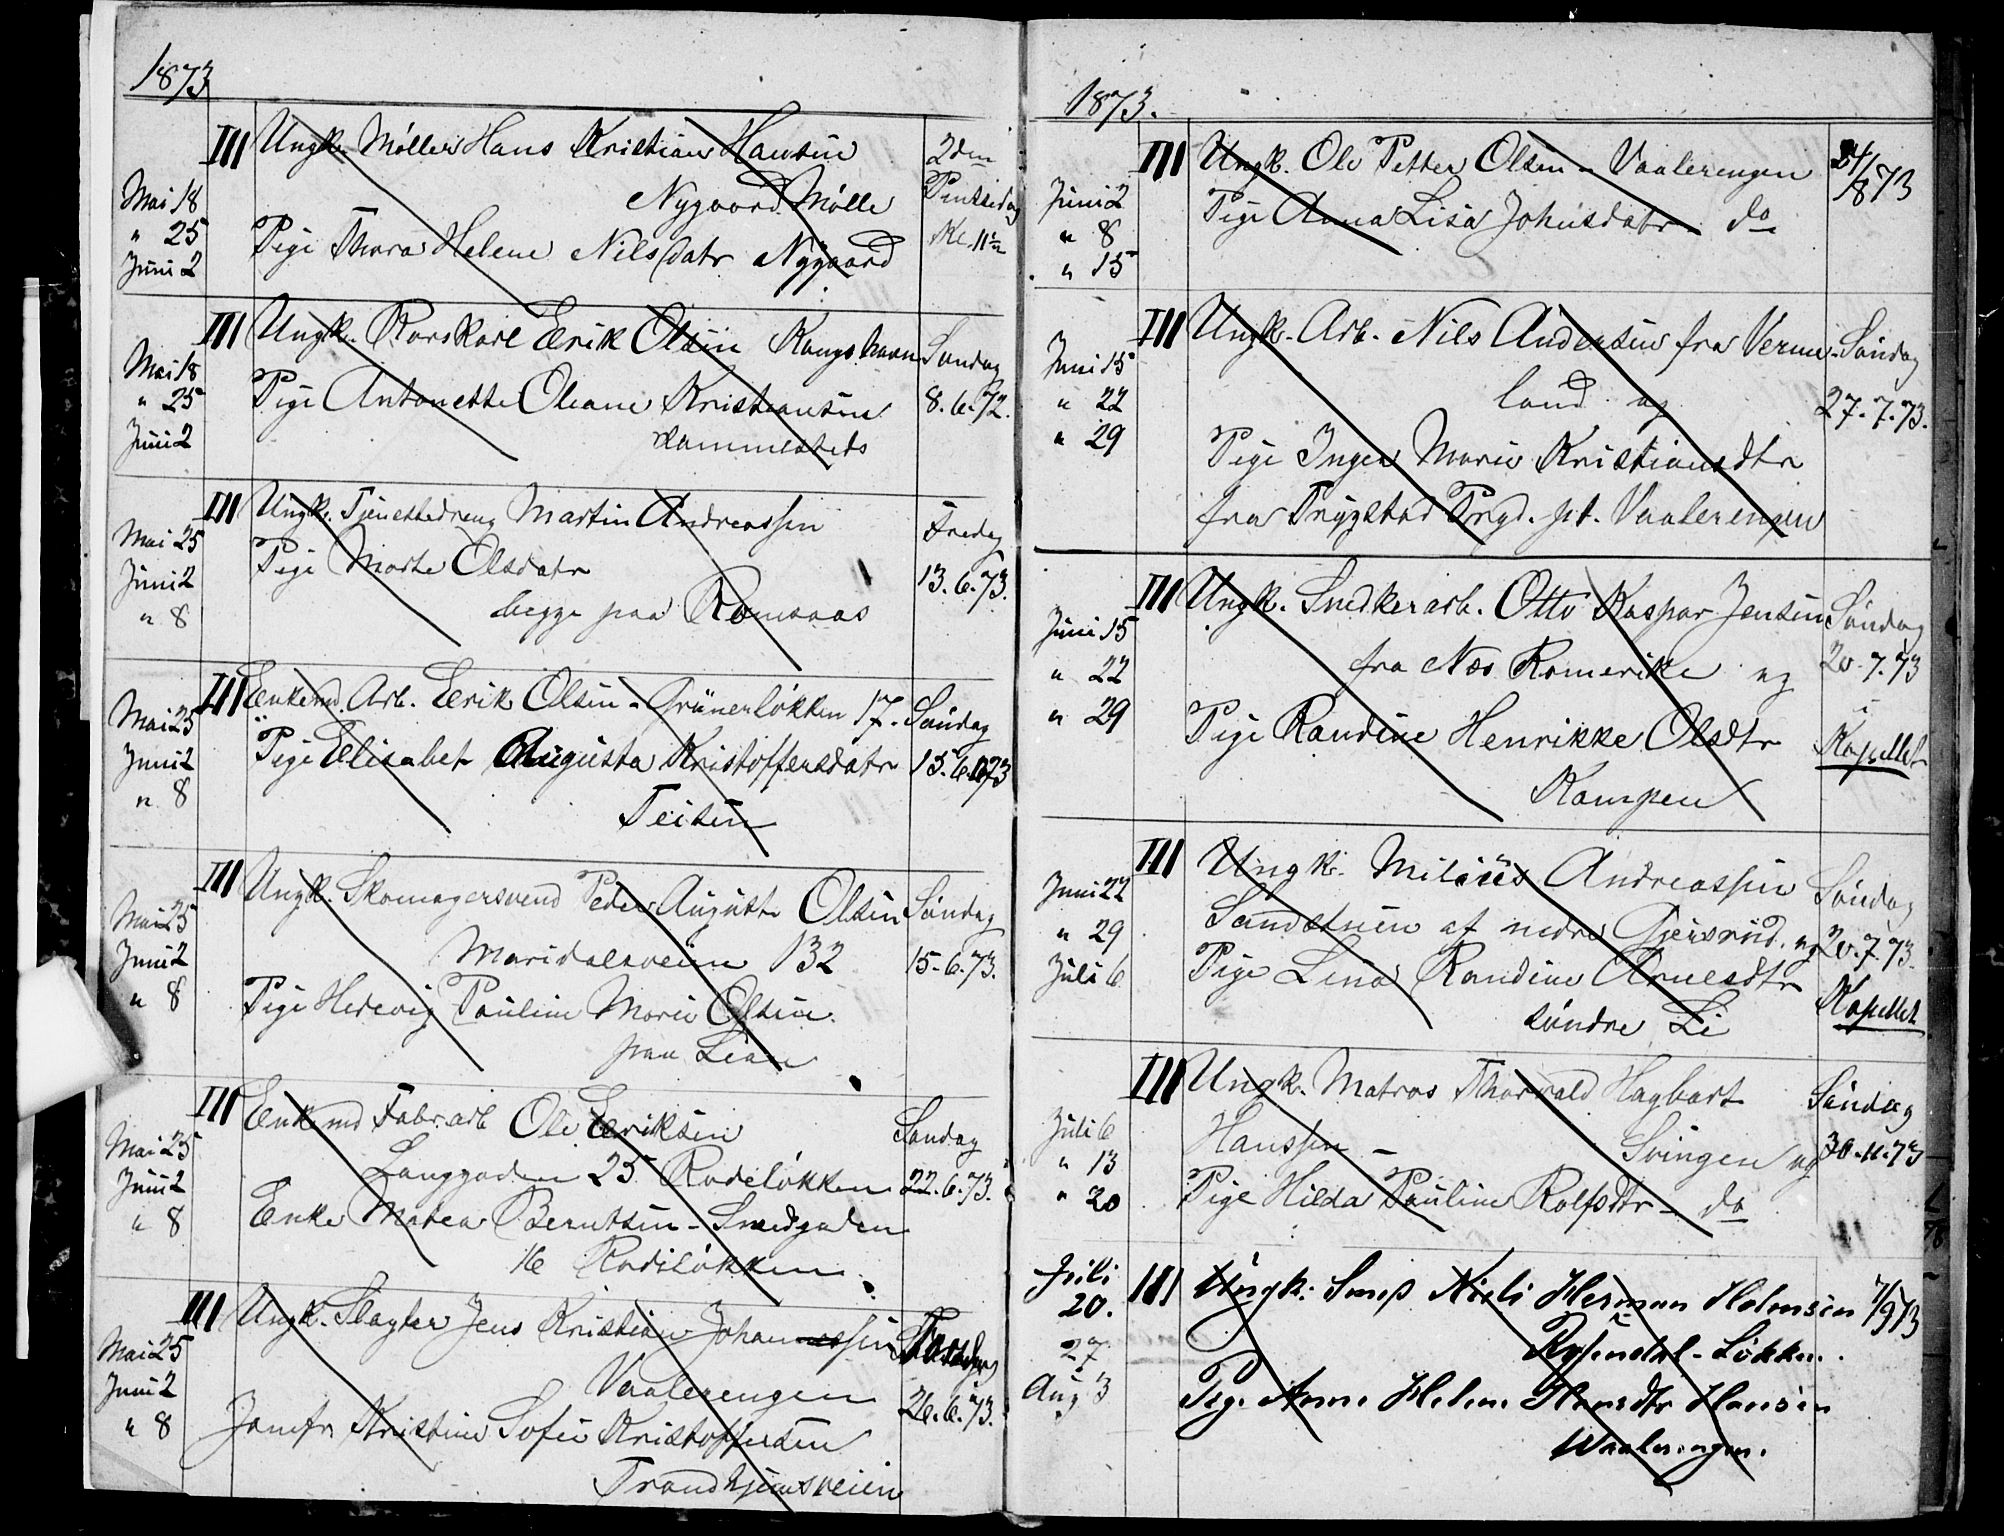 1873
III Ungk. Møller Hans Kristian Hansen 2den
Mai 18 Nygaard Mølle Pintsedag
" 25 Pige Thora Helene Nilsdatr Nygaard Kl. 11½
Juni 2
III Ungk. Erik Olsen Kongshavn Søndag
Mai 18
" 25 Pige Antonette Oleane Kristiansen 8.6.72.
Juni 2 Hammersteds
III Ungk. Tjenestedreng Martin Andreassen Fredag
Mai 25
Juni 2 Pige Marte Olsdatr 13.6.73.
" 8 begge paa Romsaas
III Enkemd. Arb. Erik Olsen - Grünerløkken 17. Søndag
Mai 25
Juni 2 Pige Elisabet Augusta Kristoffersdatr 15.6.73
" 8 Teisen
III Ungk. Skomagersvend Peder August Olsen Søndag
Mai 25
Juni 2 Maridalsveien 132 15.6.73.
" 8 Pige Hedevig Pauline Marie Olsen.
paa Lian
III Enkemd Fabr.arb Ole Eriksen Søndag
Mai 25
Juni 2 Langgaden 25 Rodeløkken 22.6.73.
" 8 Enke Matea Berntsen - Snedgaden
16 Rodeløkken.
III Ungk. Slagter Jens Kristian Johannessen
Mai 25
Juni 2 Vaalerengen 26.6.73.
" 8 Jomfr Kristine Sofie Kristoffersen
Trondhjemsveien
1873.
III Ungk. Ole Petter Olsen - Vaalerengen 24/873
Juni 2 Pige Anna Lisa Johnsdatr - do
" 8
" 15
III Ungk. Arb. Nils Andersen fra Verm- Søndag
Juni 15
" 22 land og 27.7.73.
" 29 Pige Inger Marie Kristiansdtr
fra Trygstad Prgd. pt. Vaalerengen
III Ungk. Snedkerarb. Otto Kaspar Jensen Søndag
Juni 15
" 22 fra Næs Romerike og 20.7.73
" 29 i
Pige Randine Henrikke Olsdtr Kapellet
Kampen
III Ungk. Andreassen Søndag
Juni 22
" 29 Sandstuen af nedre Gjersrud. og 20.7.73.
Juli 6 Pige Lina Randine Arnesdtr Kapellet
søndre Li
III Ungk. Matros Thorvald Hagbart Søndag
Juli 6
" 13 Hanssen - Svingen og 30.11.73
" 20 Pige Hilda Pauline Rolfsdtr - do
Juli
20. III Ungk. Smed Niels Herman Holmsen 7/973
27 Rosendal-Løkken.
Aug 3 Pige Anne Helene Hansdtr Hansen
Waalerengen.